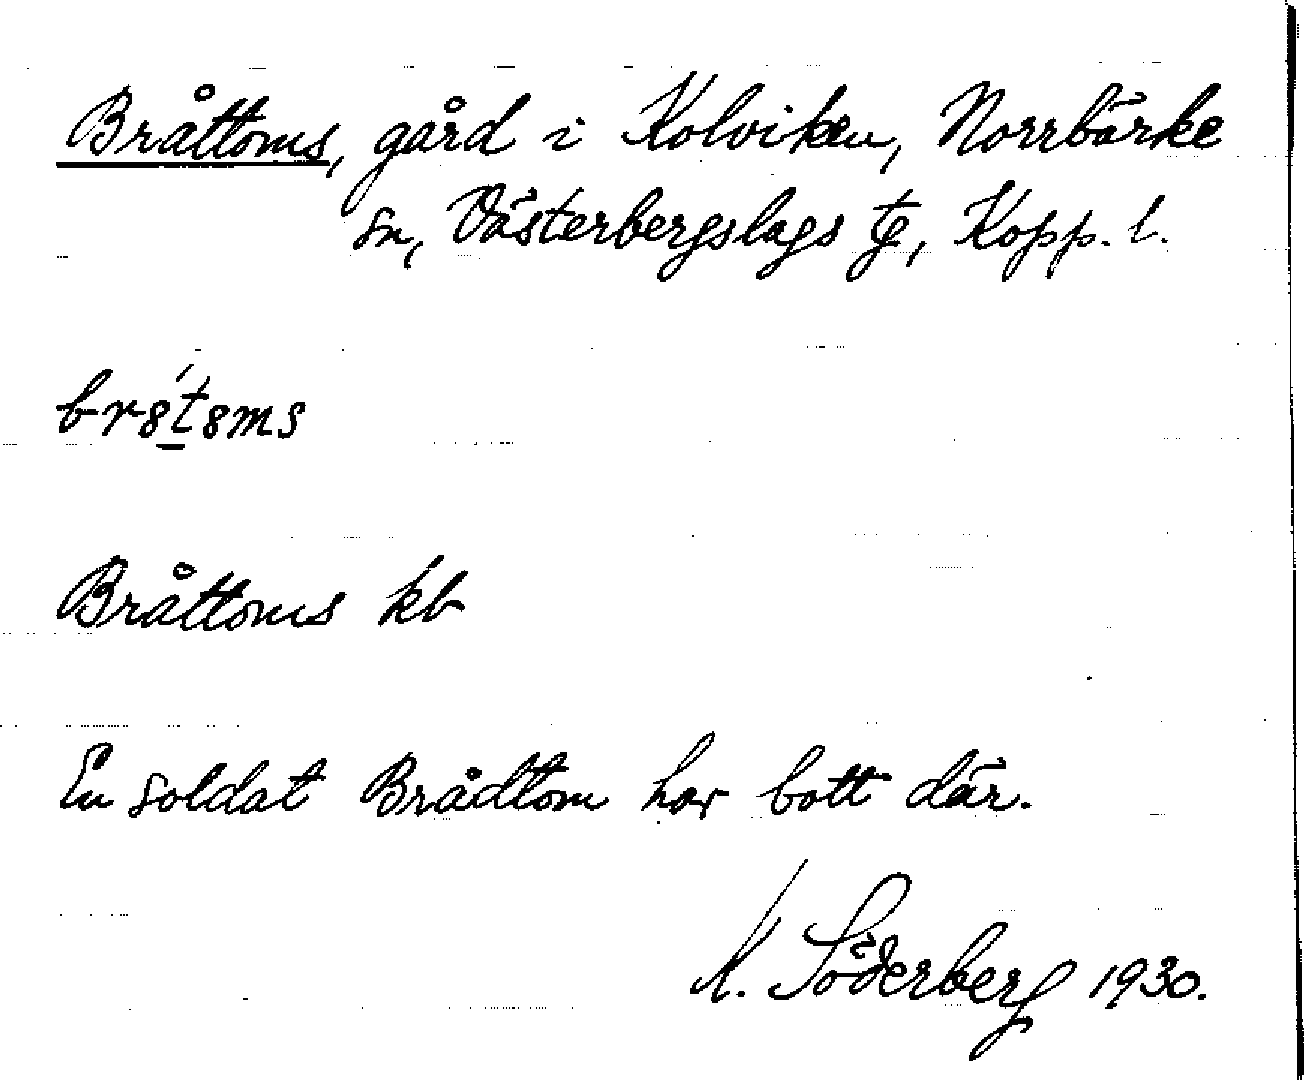 Bråttoms, gård i Kolviken, Norrbärke
sn, Västerbergslags tg, Kopp. l.
br8́t8ms
Bråttoms kb
En soldat Brådtom har bott där.
K. Söderberg 1930.